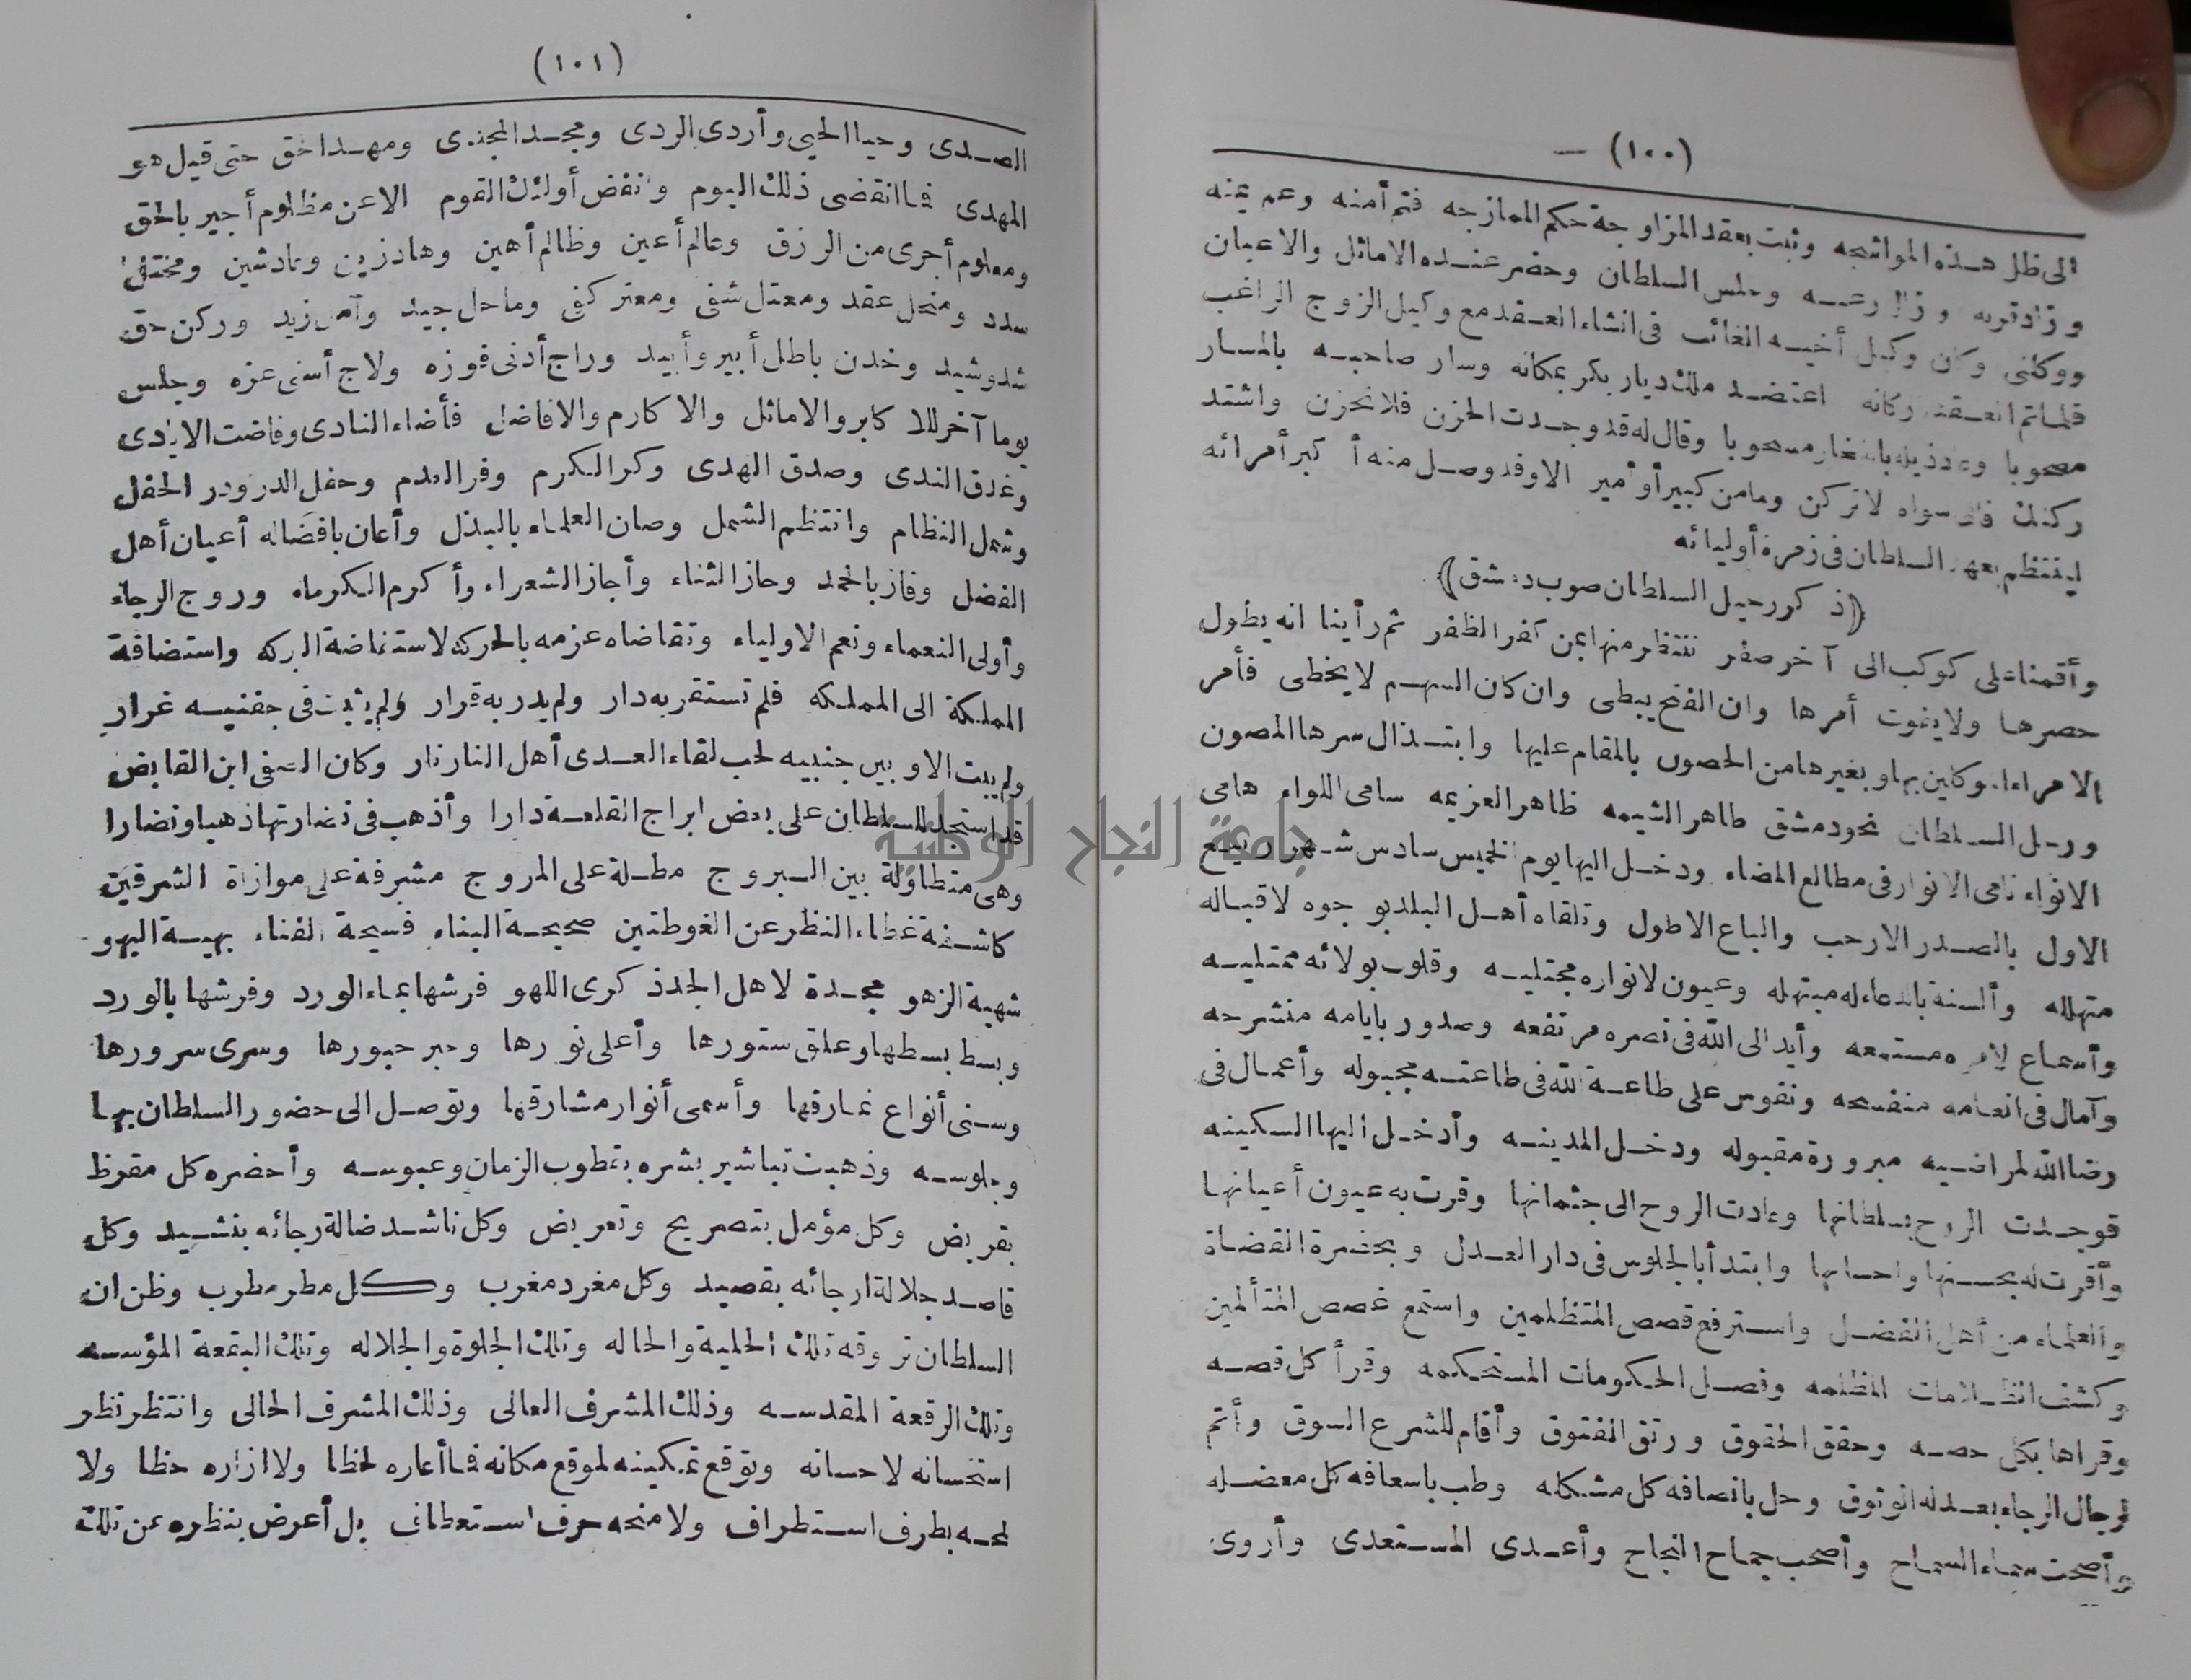 (١٠٠) —
الى ظل هذه المواشجه وثبت بعقد المزاوجة حكم الممازجه فتم أمنه وعم يمنه
وزاد قربه وزال رعبه وجلس السلطان وحضر عنده الاماثل والاعيان
ووكلنى وكان وكيل أخيه الغائب فى انشاء العقد مع وكيل الزوج الراغب
فلما تم العقد بركانه اعتضد ملك ديار بكر بمكانه وسار صاحبه بالمسار
مصحوبا وعاد ذيله بالفخار مسحوبا وقال له قد وجدت الحزن فلا تحزن واشتد
ركنك فالى سواه لا تركن وما من كبير أو أمير الا وفد وصل منه أكبر أمرائه
لينتظم بعهد السلطان فى زمرة أوليائه
﴿ذكر رحيل السلطان صوب دمشق﴾
وأقمنا على كوكب الى آخر صفر ننتظر منها بمن كفر الظفر ثم رأينا انه يطول
حصرها ولا يفوت أمرها وان الفتح يبطى وان كان السهم لا يخطى فأمر
الامراء الموكلين بها وبغيرها من الحصون بالمقام عليها وابتذال سرها المصون
ورحل السلطان نحو دمشق طاهر الشيمه ظاهر العزيمه سامى اللواء هامى
الانواء نامى الانوار فى مطالع المضاء ودخل اليها يوم الخميس سادس شهر ربيع
الاول بالصدر الارحب والباع الاطول وتلقاه أهل البلد بوجوه لاقباله
متهلله وألسنة بالدعاء له مبتهله وعيون لانواره مجتليه وقلوب بولائه ممتليه
وأسماع لامره مستمعه وأيد الى الله فى نصره مرتفعه وصدور بايامه منشرحه
وآمال فى انعامه منفسحه ونفوس على طاعة الله فى طاعته مجبوله وأعمال فى
رضا الله لمراضيه مبرورة مقبوله ودخل المدينه وأدخل اليها السكينه
فوجدت الروح بسلطانها وعادت الروح الى جثمانها وقرت به عيون أعيانها
وأقرت له بحسنها واحسانها وابتدأ بالجلوس فى دار العدل وبحضرة القضاة
والعلماء من أهل الفضل واسترفع قصص المتظلمين واستمع غصص المتألمين
وكشف الظلامات المظلمه وفصل الحكومات المستحكمه وقرأ كل قصه
وقراها بكل حصه وحقق الحقوق ورتق الفتوق وأقام للشرع السوق وأتم
لرجال الرجاء بعدله الوثوق وحل بانصافه كل مشكله وطب باسعافه كل معضله
وأصحت سماء السماح وأصحب جماح النجاح وأعدى المستعدى وأروى
(١٠١)
الصدى وحيا الحيى وأردى الردى ومجد المجتدى ومهد الحق حتى قيل هو
المهدى فما انقضى ذلك اليوم وانفض أولئك القوم الا عن مظلوم أجير بالحق
ومعلوم أجرى من الرزق وعالم أعين وظالم أهين وهاد زين وناد شين ومختل
سدد ومنحل عقد ومعتل شفى ومعتر كفى وماحل جيد وآمل زيد وركن حق
شد وشيد وخدن باطل أبير وأبيد وراج أدنى فوزه ولاج أسنى عزه وجلس
يوما آخر للاكابر والاماثل والاكارم والافاضل فأضاء النادى وفاضت الايادى
وغدق الندى وصدق الهدى وكر الكرم وفر العدم وحفل الدر ودر الحفل
وشمل النظام وانتظم الشمل وصان العلماء بالبذل وأعان بافضاله أعيان أهل
الفضل وفاز بالحمد وحاز الثناء وأجاز الشعراء وأكرم الكرماء وروج الرجاء
وأولى النعماء ونعم الاولياء وتقاضاه عزمه بالحركه لاستفاضة البركه واستضافة
المملكة الى المملكه فلم تستقر به دار ولم يدر به قرار ولم يثبت فى جفنيه غرار
ولم يبت الا وبين جنبيه لحب لقاء العدى أهل النار نار وكان الصفى ابن القابض
قد استجد للسلطان على بعض ابراج القلعة دارا وأذهب فى نضارتها ذهبا ونضارا
وهى متطاولة بين البروج مطلة على المروج مشرفة على موازاة الشرقين
كاشفة غطاء النظر عن الغوطتين صحيحة البناء فسيحة الفناء بهية البهو
شهية الزهو مجددة لاهل الجد ذكرى اللهو فرشها بماء الورد وفرشها بالورد
وبسط بسطها وعلق ستورها وأعلى نورها وحبر حبورها وسرى سرورها
وسنى أنواع نمارقها وأسمى أنوار مشارقها وتوصل الى حضور السلطان بها
وجلوسه وذهبت تباشير بشره بقطوب الزمان وعبوسه وأحضره كل مقرظ
بقريض وكل مؤمل بتصريح وتعريض وكل ناشد ضالة رجائه بنشيد وكل
قاصد جلالة ارجائه بقصيد وكل مغرد مغرب وكل مطر مطرب وظن ان
السلطان تروقه تلك الحلية والحاله وتلك الجلوة والجلاله وتلك البقعة المؤسسه
وتلك الرقعة المقدسه وذلك المشرف العالى وذلك المشرف الحالى وانتظر نظر
استحسانه لاحسانه وتوقع تمكينه لموقع مكانه فما أعاره لحظا ولا ازاره حظا ولا
لمحه بطرف استطراف ولا منحه حرف استعطاف بل أعرض بنظره عن تلك
جامعة النجاح الوطنية